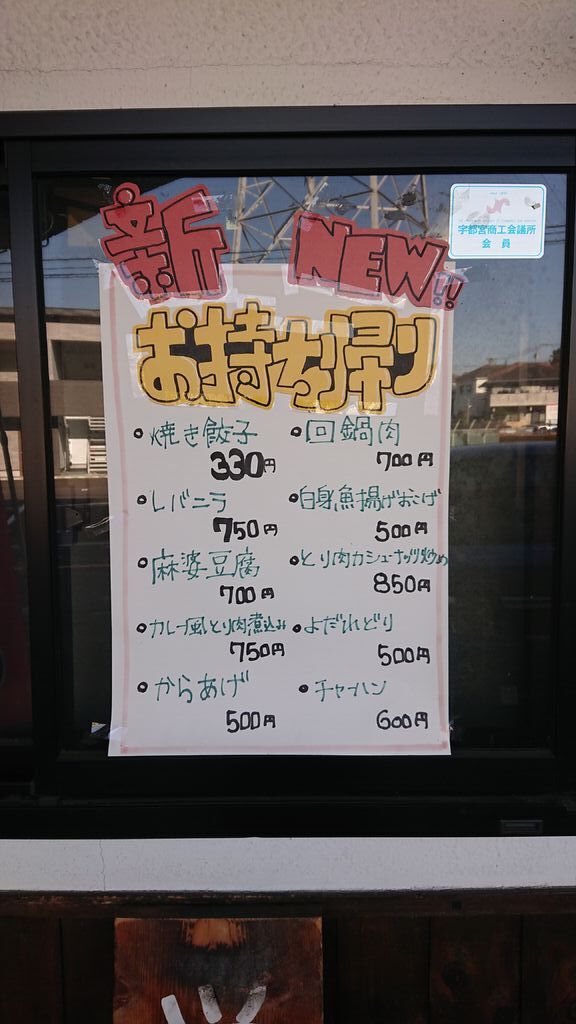 新 NEW!!
宇都宮商工会議所
会員
お持ち帰り
・焼き餃子
330円
・レバニラ
750円
・麻婆豆腐
700円
・カレー風とり肉煮込み
750円
・からあげ
500円
・回鍋肉
700円
・白身魚揚げおこげ
500円
・とり肉カシューナッツ炒め
850円
・よだれどり
500円
・チャーハン
600円